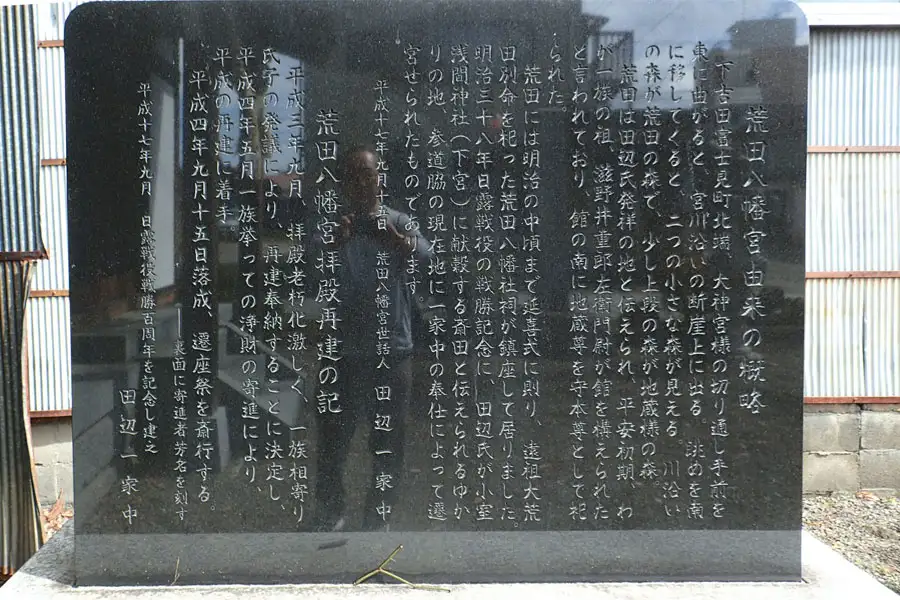 荒田八幡宮由来の概略
下吉田富士見町北端、大神宮様の切り通し手前を
東に曲がると、宮川沿いの断崖上に出る。眺めを南
に移してくると、二つの小さな森が見える。川沿い
の森が荒田の森で、少し上段の森が地蔵様の森。
荒田は田辺氏発祥の地と伝えられ、平安初期、わ
が一族の祖、滋野井重郎左衛門尉が館を構えられた
と言われており、館の南に地蔵尊を守本尊として祀
られた。
荒田には明治の中頃まで延喜式に則り、遠祖大荒
田別命を祀った荒田八幡社祠が鎮座して居りました。
明治三十八年日露戦役の戦勝記念に、田辺氏が小室
浅間神社（下宮）に献穀する斎田と伝えられるゆか
りの地、参道脇の現在地に一家中の奉仕によって遷
宮せられたものであります。
平成十七年九月十五日 荒田八幡宮世話人 田辺一家中
荒田八幡宮拝殿再建の記
平成三年九月、拝殿老朽化激しく、一族相寄り
氏子の発議により、再建奉納することに決定し、
平成四年五月一族挙っての浄財の寄進により、
平成の再建に着手。
平成四年九月十五日落成、遷座祭を斎行する。
──裏面に寄進者芳名を刻す
平成十七年九月 日露戦役戦勝百周年を記念し建之
田辺一家中